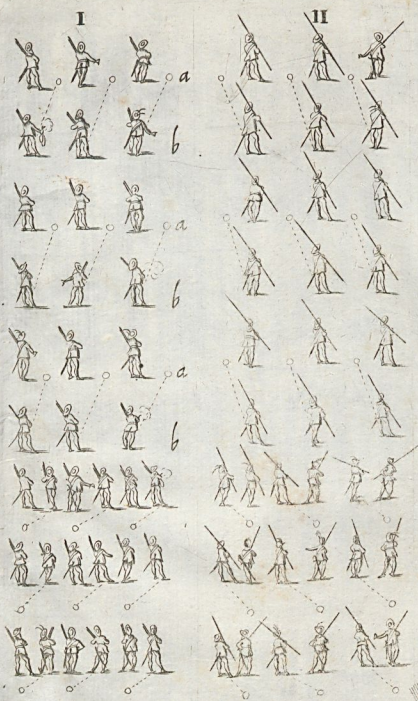 I II
a
b
a
b
a
b